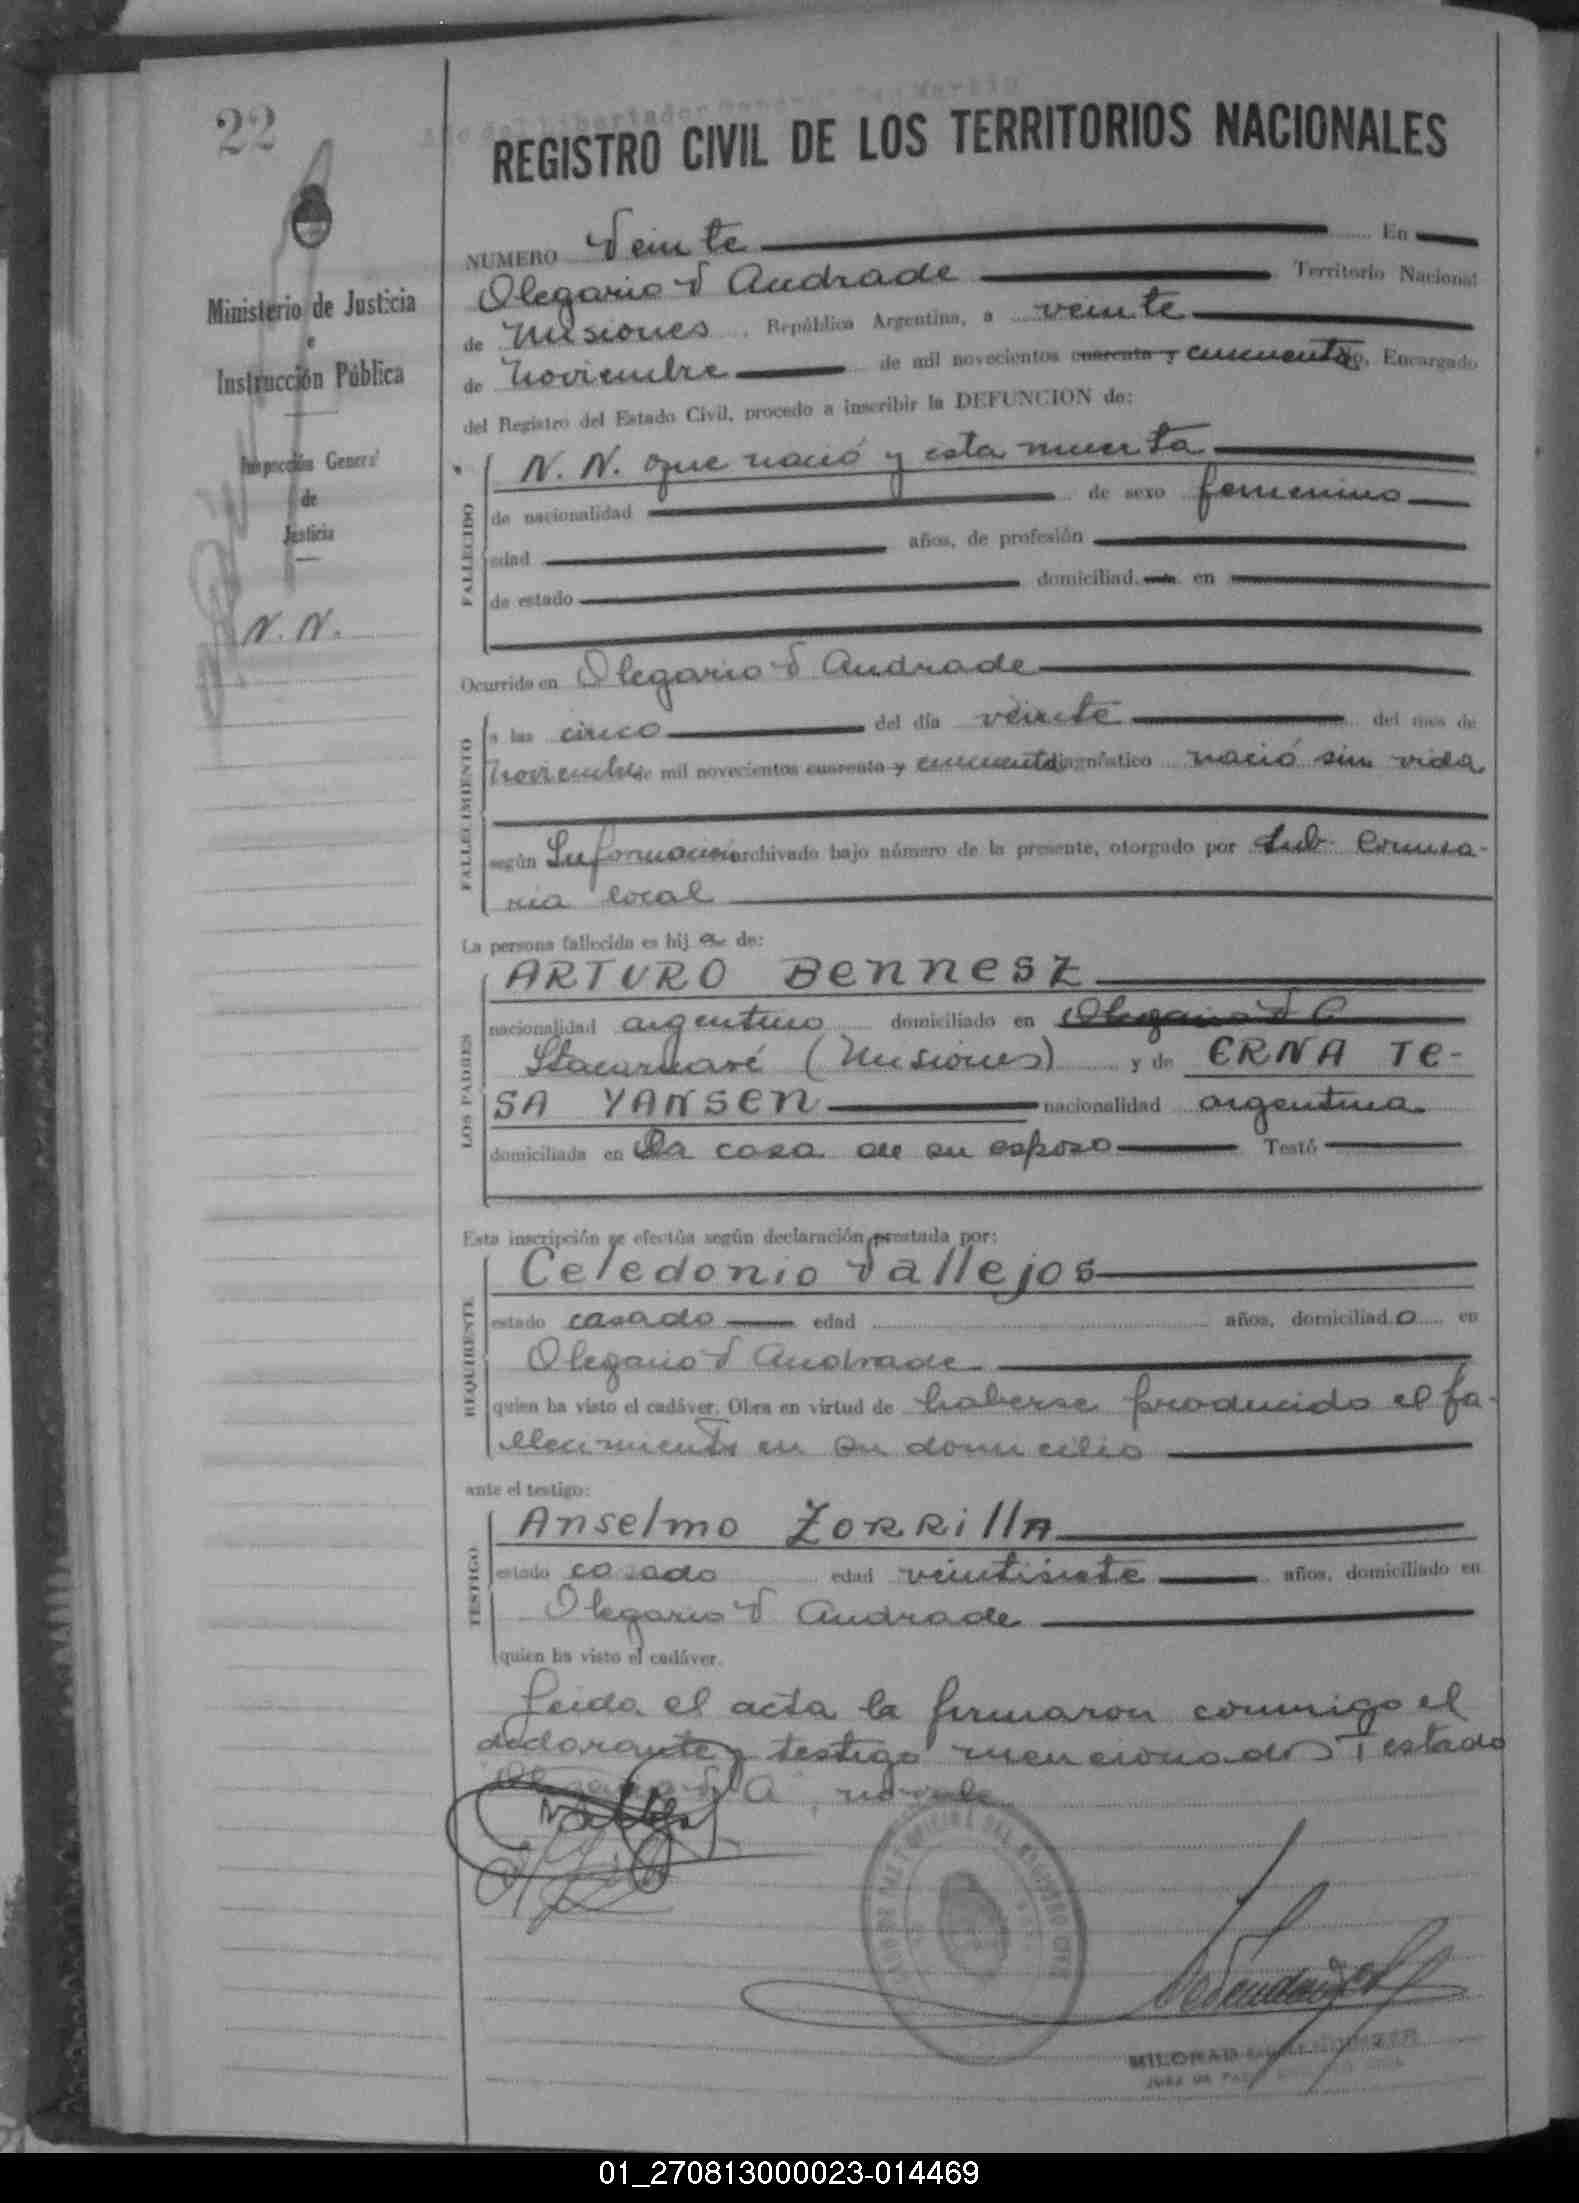 22
REGISTRO CIVIL DE LOS TERRITORIOS NACIONALES
Ministerio de Justicia
e
Instrucción Pública
Inspección General
de
Justicia
N. N.
NUMERO Veinte En
Olegario V Andrade Territorio Nacional
de Misiones, República Argentina, a veinte
de Noviembre de mil novecientos cuarenta y cincuenta yo, Encargado
del Registro del Estado Civil, procedo a inscribir la DEFUNCION de:
FALLECIDO
N. N. que nació y esta muerta
de nacionalidad de sexo femenino
edad años, de profesión
de estado domiciliad en
Ocurrido en Olegario V Andrade
FALLECIMIENTO
a las cinco del día veinte del mes de
Noviembre de mil novecientos cuarenta y cincuenta diagnóstico nació sin vida
según Información archivado bajo número de la presente, otorgado por Sub-Comisa-
ria local
La persona fallecida es hij a de:
LOS PADRES
ARTURO BENNESZ
nacionalidad argentino domiciliado en Olegario V A
(Misiones) y de ERNA TE-
SA YANSEN nacionalidad argentina
domiciliada en La casa de su esposo Testó
Esta inscripción se efectúa según declaración prestada por:
REQUIRENTE
Celedonio Vallejos
estado casado edad años, domiciliad o en
Olegario V Andrade
quien ha visto el cadáver. Obra en virtud de haberse producido el fa-
llecimiento en su domicilio
ante el testigo:
TESTIGO
Anselmo ZORRILLA
estado casado edad veintisiete años, domiciliado en
Olegario V Andrade
quien ha visto el cadáver.
Leida el acta la firmaron conmigo el
declarante y testigo mencionados Testado
Olegario V A, no vale
MILORAD
JUEZ DE PAZ
01_270813000023-014469